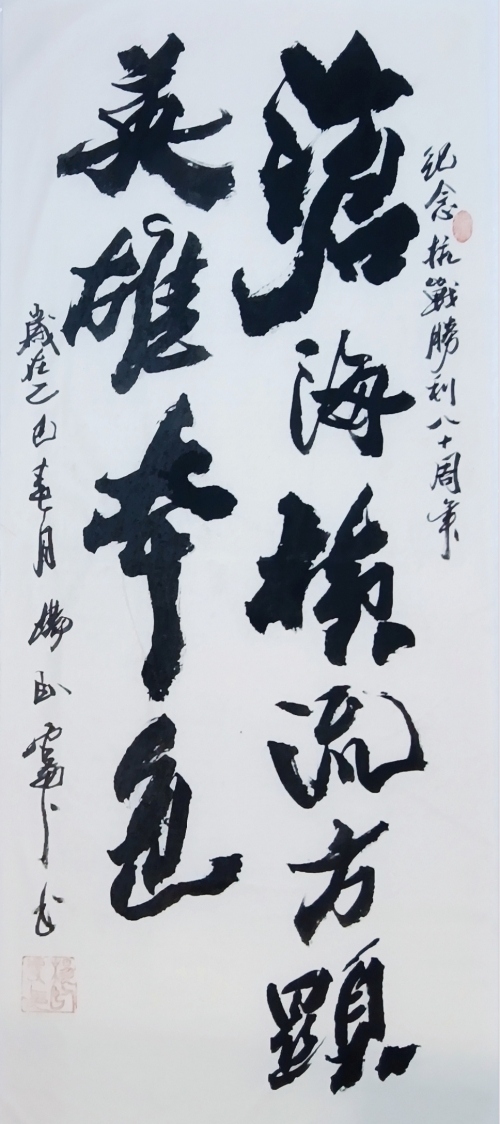 纪念抗戰勝利八十周年
滄海横流方顯
英雄本色
歲在乙巳春月 楊 书